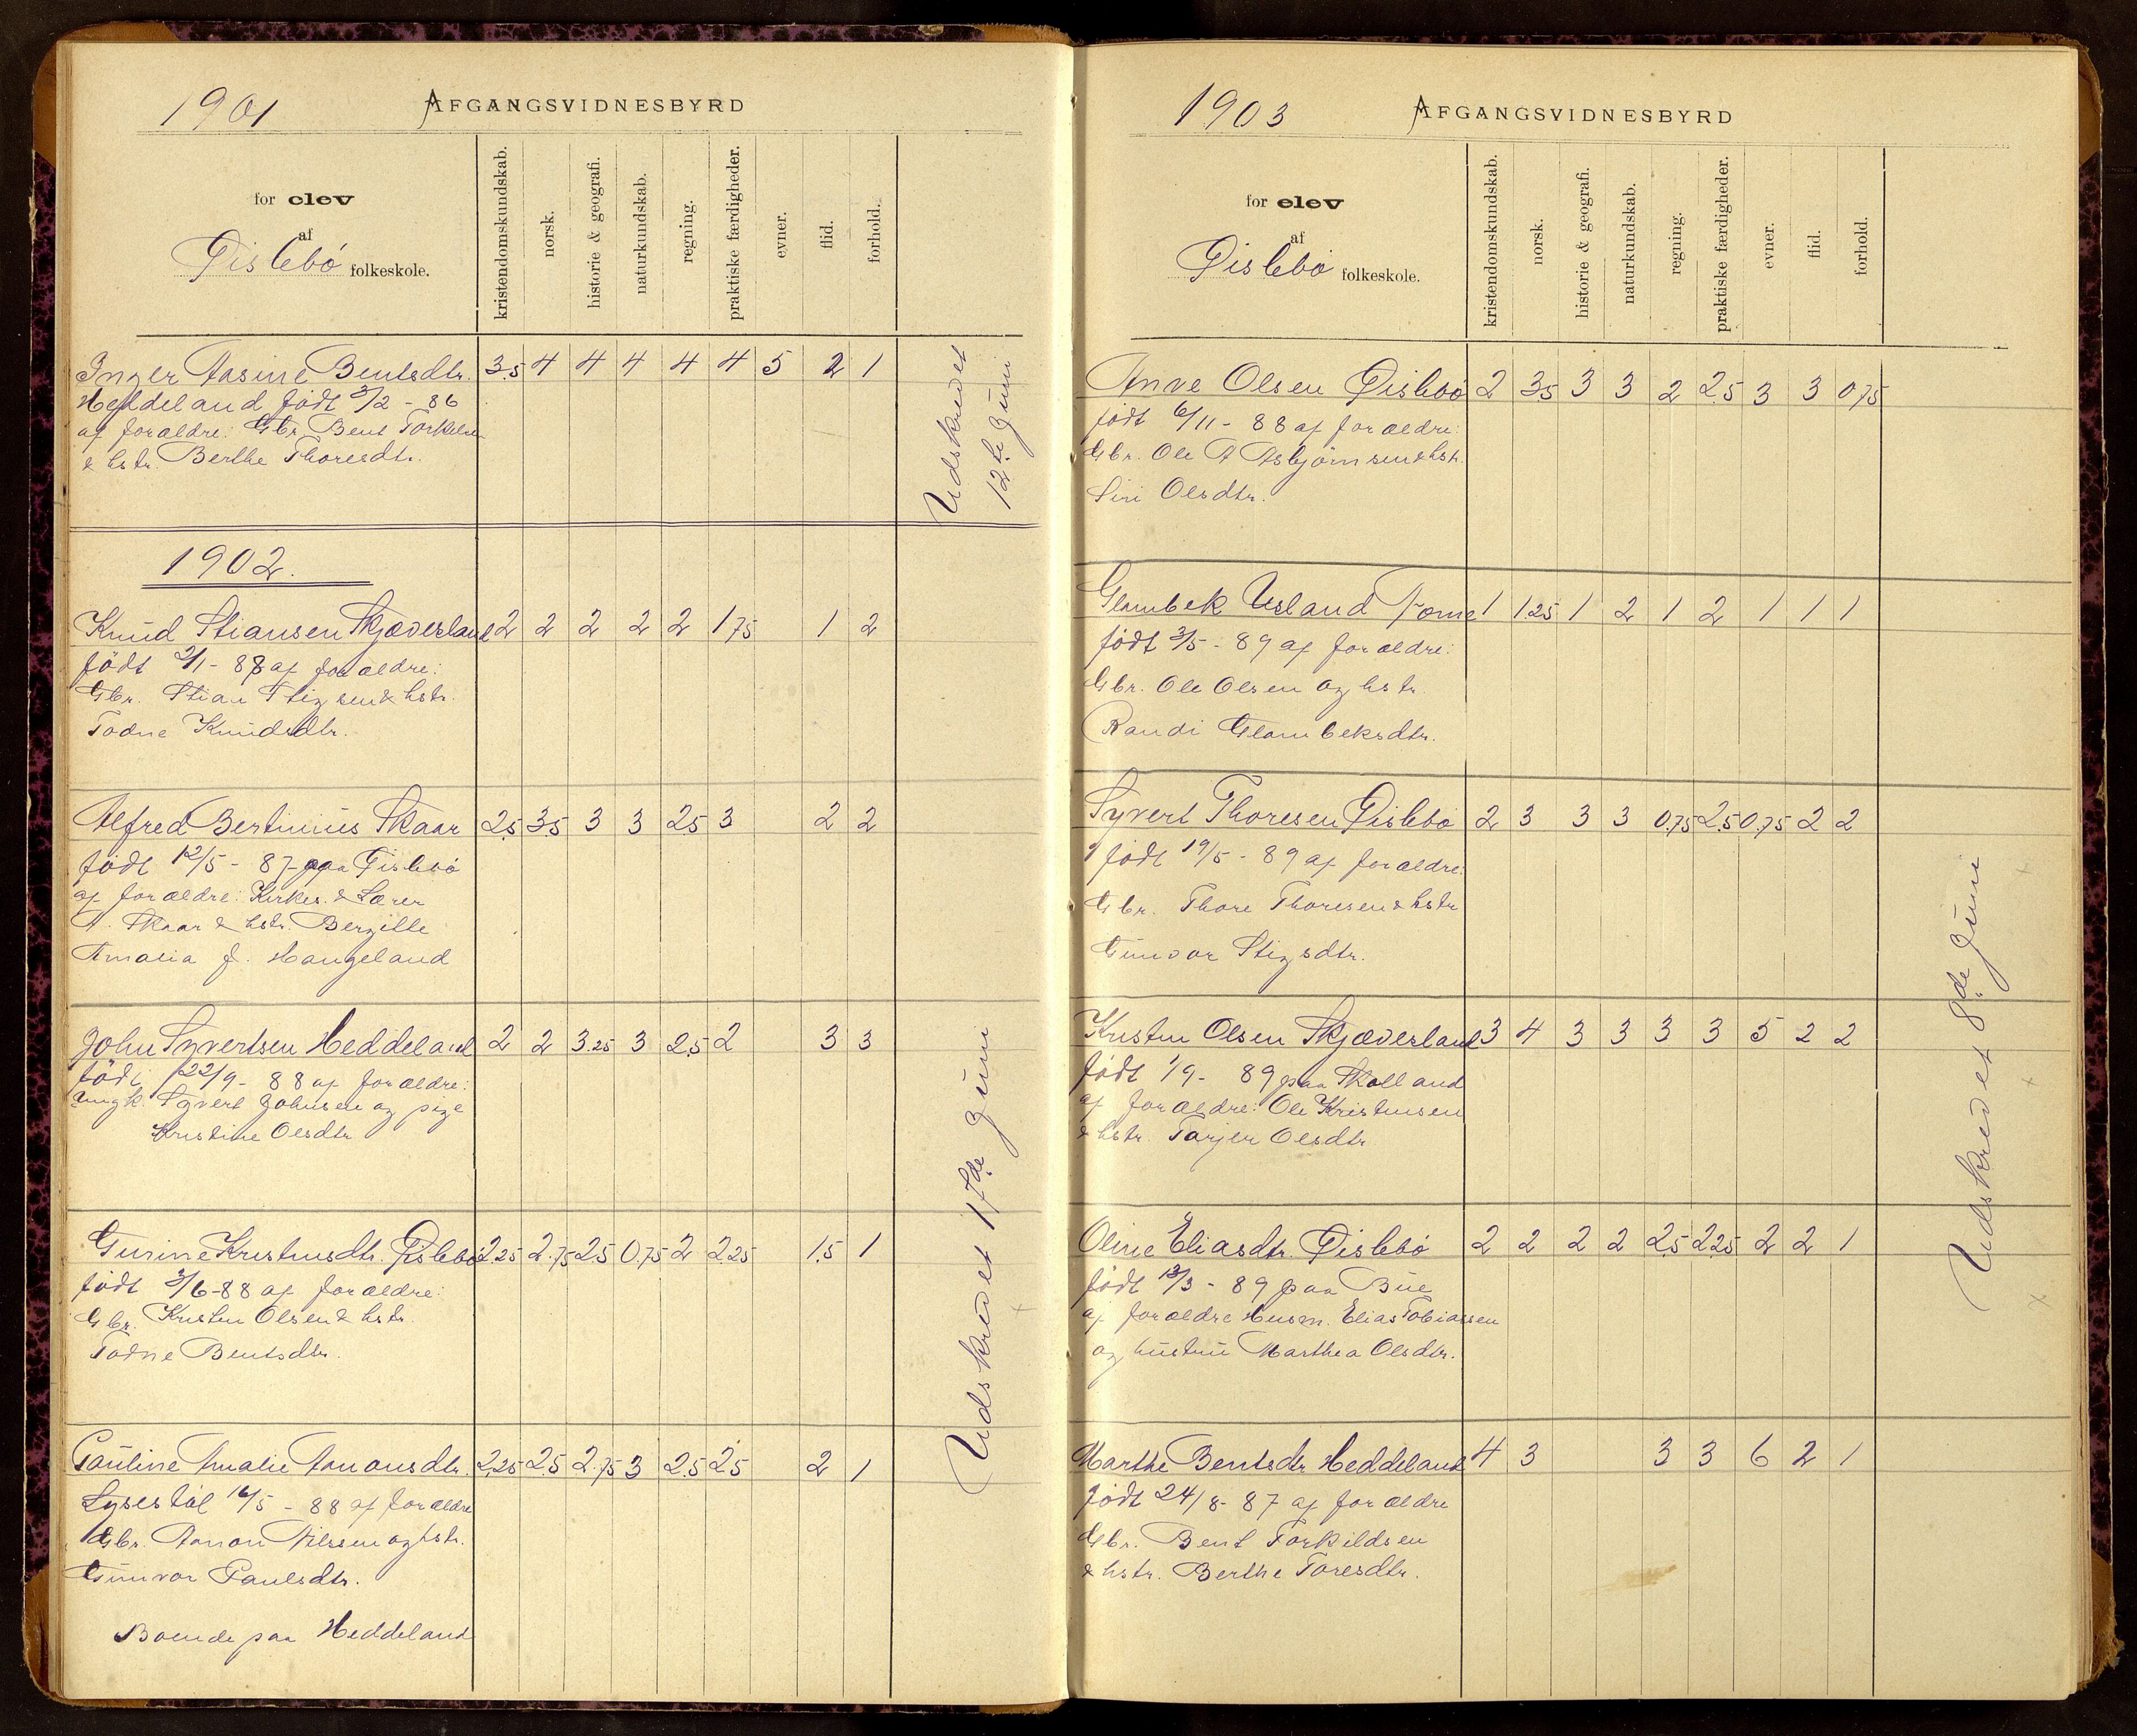 1901
AFGANGSVIDNESBYRD
for elev
af
Øislebö folkeskole.
kristendomskundskab.
norsk.
historie & geografi.
naturkundskab.
regning.
praktiske færdigheder.
evner.
flid.
forhold.
Inger Aasine Bentsdtr. 3.5 4 4 4 4 4 5 2 1
Heddeland födt 3/2 - 86
af foraldre: Gbr. Bent Torkelsen
& hstr. Berthe Thoresdtr.
Udskrevet
12te Juni
1902.
Knud Stiansen Skjæversland 2 2 2 2 2 1 75 1 2
födt 2/1 - 88 af foraldre:
Gbr. Stian Stigsen & hstr.
Todne Knudsdtr.
Alfred Bertinius Skaar 2.5 3.5 3 3 2.5 3 2 2
födt 12/5 - 87 paa Øislebö
af foraldre: Kirkes. & Lærer
A. Skaar & hstr. Bergitte
Amalia f. Haugeland
John Syvertsen Heddeland 2 2 3.25 3 2.5 2 3 3
födt 22/9 - 88 af foraldre:
Ungk. Syvert Johnsen og pige
Kristine Olsdtr
Gurine Kristensdtr. Øislebö 2.25 2.75 2.5 0.75 2 2.25 1.5 1
födt 3/6-88 af foraldre:
Gbr. Kristen Olsen & hstr.
Todne Bentsdtr.
Pauline Amalie Aanonsdtr. 2.25 2.5 2.75 3 2.5 2.5 2 1
Lysestöl 16/5 - 88 af foraldre
Gbr. Aanon Nilssen og hstr.
Gunvor Paulsdtr.
Boende paa Heddeland
Udskrevet 17de Juni
1903
AFGANGSVIDNESBYRD
for elev
af
Øislebö folkeskole.
kristendomskundskab.
norsk.
historie & geografi.
naturkundskab.
regning.
praktiske færdigheder.
evner.
flid.
forhold.
Anve Olsen Øislebö 2 3.5 3 3 2 2.5 3 3 0.75
födt 6/11 - 88 af foraldre:
Gbr. Ole A Asbjörnsen & hstr.
Siri Olsdtr.
Glambek Usland Tome 1 1.25 1 2 1 2 1 1 1
födt 3/5 - 89 af foraldre:
Gbr. Ole Olsen og hstr.
Randi Glambeksdtr.
Syvert Thoresen Øislebö 2 3 3 3 0.75 2.5 0.75 2 2
födt 19/5 - 89 af foraldre:
Gbr. Thore Thoresen & hstr
Gunvor Stigsdtr.
Kristen Olsen Skjæversland 3 4 3 3 3 3 5 2 2
födt 1/9 - 89 paa Skolland
af foraldre: Ole Kristensen
& hstr. Tarjer Olsdtr
Oline Eliasdtr. Øislebö 2 2 2 2 2.5 2.25 2 2 1
födt 13/3 - 89 paa Bue
af foraldre Husm. Elias Tobiassen
og hustru Marthea Olsdtr.
Marthe Bentsdtr Heddeland 4 3 3 3 6 2 1
födt 24/8 - 87 af foraldre
Gbr. Bent Torkildsen
& hstr. Berthe Toresdtr.
Udskrevet 8de Juni